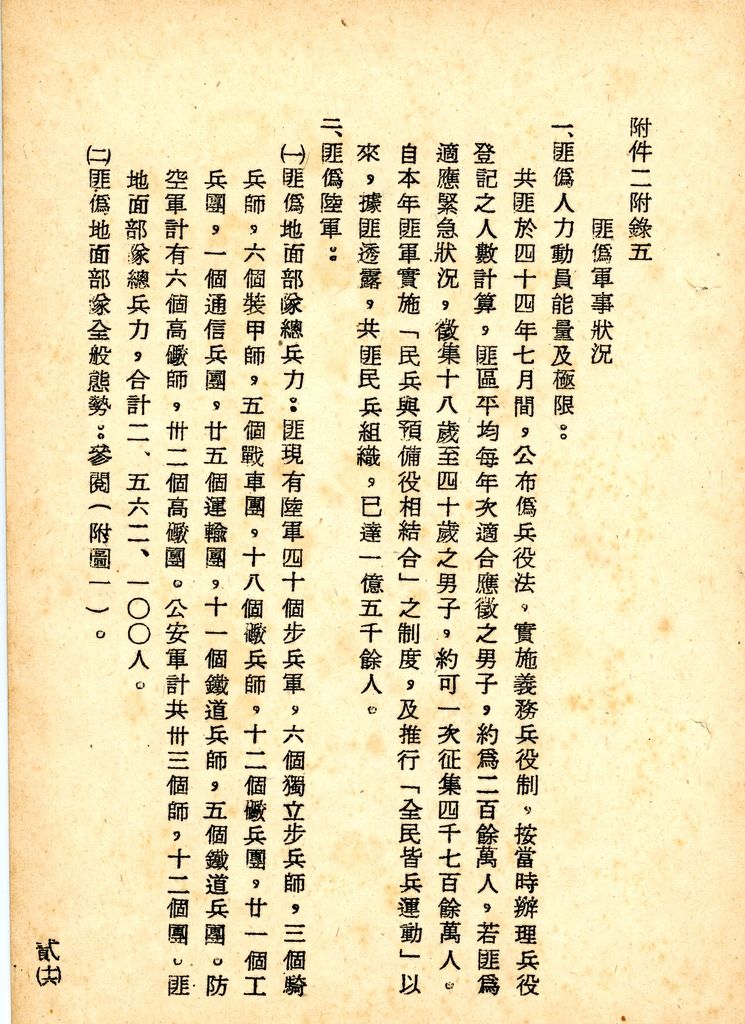 附件二附錄五
匪僞軍事狀況
一、匪僞人力動員能量及極限：
共匪於四十四年七月間，公布僞兵役法，實施義務兵役制，按當時辦理兵役
登記之人數計算，匪區平均每年次適合應徵之男子，約爲二百餘萬人，若匪爲
適應緊急狀況，徵集十八歲至四十歲之男子，約可一次征集四千七百餘萬人。
自本年匪軍實施「民兵與預備役相結合」之制度，及推行「全民皆兵運動」以
來，據匪透露，共匪民兵組織，已達一億五千餘人。
二、匪僞陸軍：
㈠匪僞地面部隊總兵力：匪現有陸軍四十個步兵軍，六個獨立步兵師，三個騎
兵師，六個裝甲師，五個戰車團，十八個礮兵師，十二個礮兵團，廿一個工
兵團，一個通信兵團，廿五個運輸團，十一個鐵道兵師，五個鐵道兵團。防
空軍計有六個高礮師，卅二個高礮團。公安軍計共卅三個師，十二個團。匪
地面部隊總兵力，合計二、五六二、一〇〇人。
㈡匪僞地面部隊全般態勢：參閱（附圖一）。